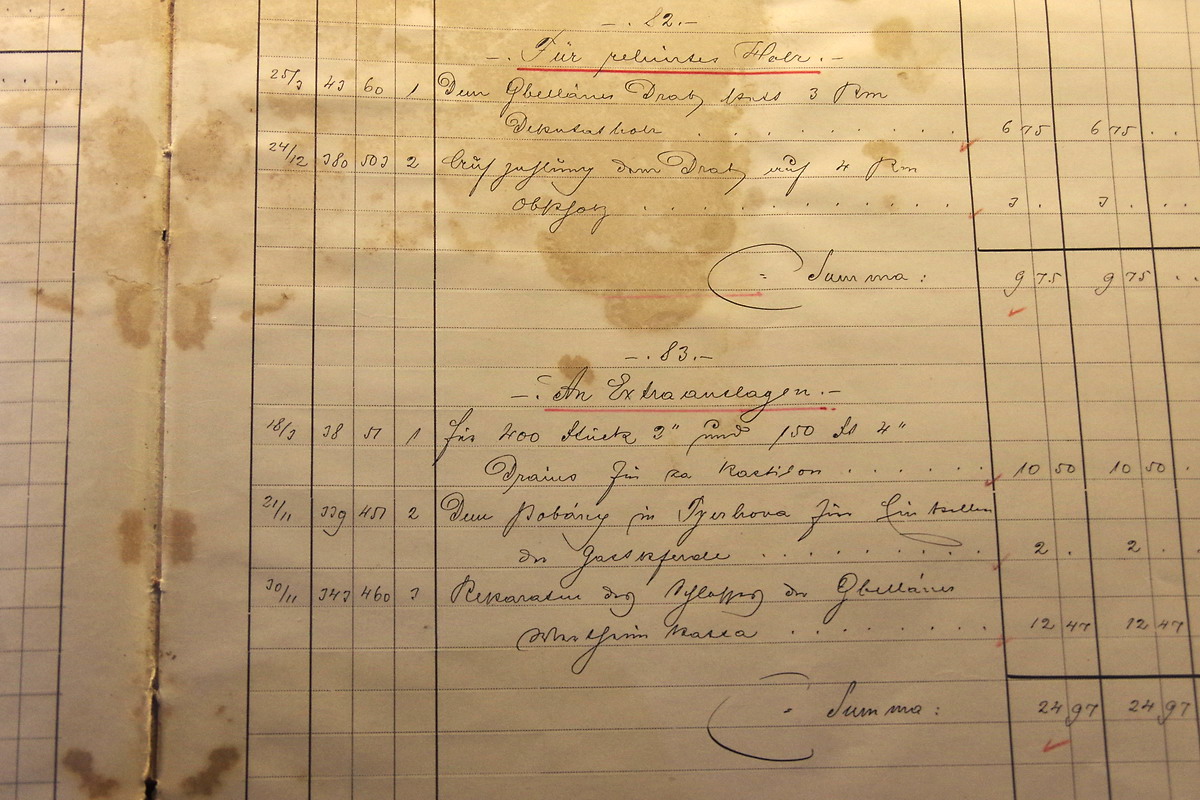 -. 82. -
-. Für reluirtes Holz. -
25/3 43 60 1 Dem Gbelláner Drab 3 Rm
Deputatholz . . . . . . . . . . 6 75 6 75 . .
24/12 380 503 2 Aufzahlung dem Drab auf 4 Rm
. . . . . . . . . . . . . 3 . 3 . . .
Summa: 9 75 9 75 . .
-. 83. -
-. An Extraauslagen. -
18/3 38 51 1 für 400 Stück 2" und 150 St 4"
Drains für . . . . . . 10 50 10 50 .
21/11 339 451 2 Dem in für Einstellen
der Gastpferde . . . . . . . . . . 2 . 2 . .
30/11 343 460 3 Reparatur des Schlosses der Gbelláner
Wertheim Kassa . . . . . . . . 12 47 12 47
Summa: 24 97 24 97